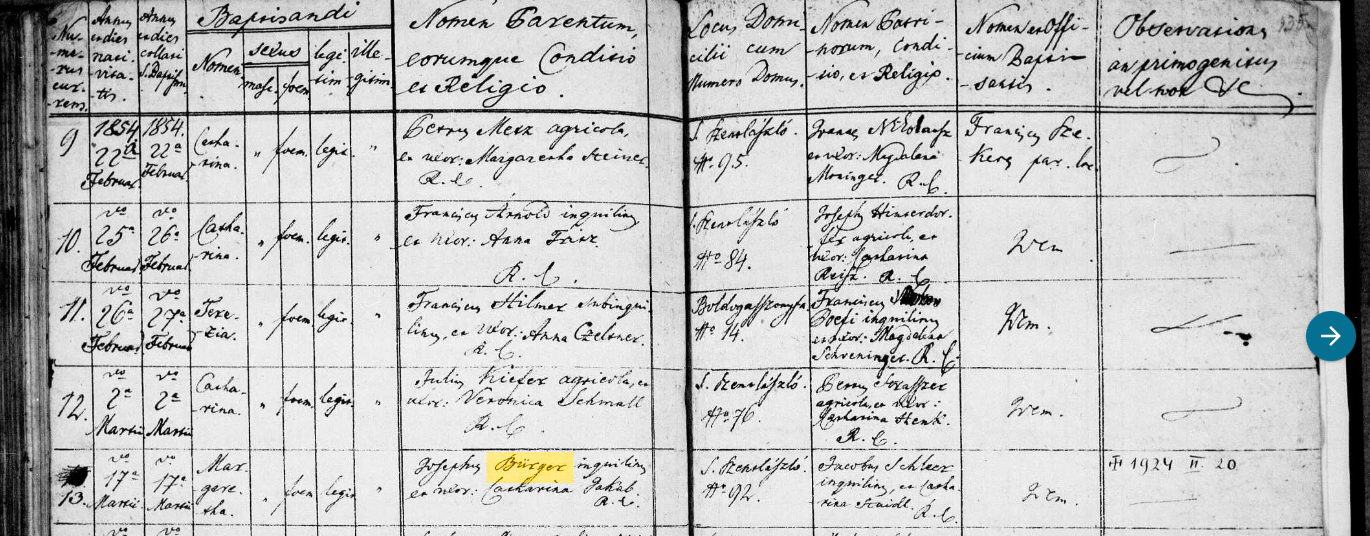 135.
Nu-
me-
rus
cur-
rens.
Annus
et dies
nati-
vita-
tis.
Annus
et dies
collati
S. Baptism.
Baptisandi
Nomen
sexus
masc.
foem.
legi-
tim.
ille-
gitim.
Nomen Parentum,
eorumque Conditio
et Religio.
Locus Domi-
cilii cum
Numero Domus.
Nomen Patri-
norum, Condi-
tio, et Religio.
Nomen et Offi-
cium Bapti-
santis.
Observationes
an primogenitus
vel non &c
9
1854
22a
Februar.
1854.
22a
Februar.
Catha-
rina.
" foem. legit. "
Petrus Metz agricola,
et uxor: Margaretha Steiner.
R. C.
S. Szentlászló.
No 95.
et uxor: Magdalena
Moninger. R. C.
Franciscus Sze-
par. loc.
10.
vo
25a
Februar.
vo
26a
Februar.
Catha-
rina.
" foem. legit. "
Franciscus Arnold inquilinus
et uxor: Anna
R. C.
S. Szentlászló
No 84.
Josephus Hinterdor-
fer agricola, et
uxor: Catharina
Reisz. R. C.
Idem
11.
vo
26a
Februar.
vo
27a
Februar.
Tere-
zia.
" foem. legit. "
Franciscus Hilmer subinqui-
linus, et uxor: Anna Czeltner.
R. C.
Boldogasszonyfa.
No 14.
Franciscus
inquilinus
et uxor: Magdalena
Schreninger. R. C.
Idem.
12.
vo
2a
Martii
vo
2a
Martii
Catha-
rina.
" foem. legit. "
Julius Kiefer agricola, et
uxor: Veronica Schmall
R. C.
S. Szentlászló.
No 76.
Petrus
agricola, et uxor:
Catharina
R. C.
Idem.
13.
vo
17a
Martii
vo
17a
Martii
Mar-
gare-
tha.
" foem. legit. "
Josephus Bürger inquilinus
et uxor: Catharina Jakab.
R. C.
S. Szentlászló.
No 92.
Jacobus Schleer
inquilinus, et Catha-
rina R. C.
Idem.
1924 II. 20
vo
vo